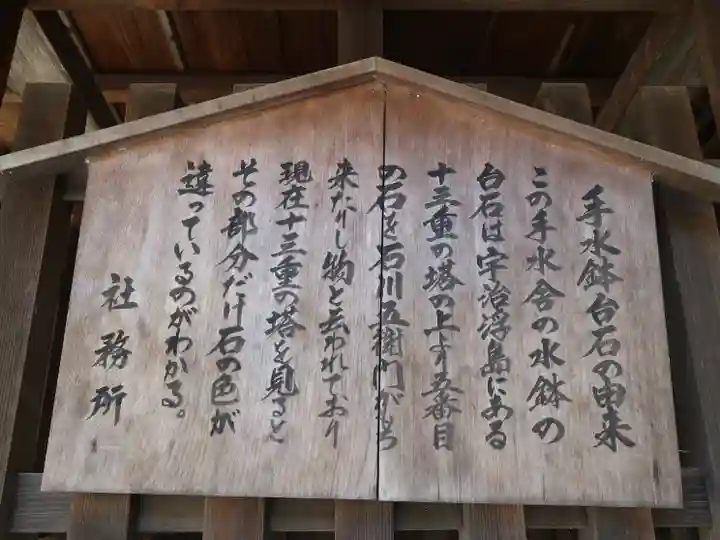 手水鉢台石の由来
この手水舎の水鉢の
台石は宇治浮島にある
十三重の塔の上より五番目
の石を石川五衛門がもち
来たりし物と云われており
現在十三重の塔を見ると
その部分だけ石の色が
違っているのがわかる。
社務所